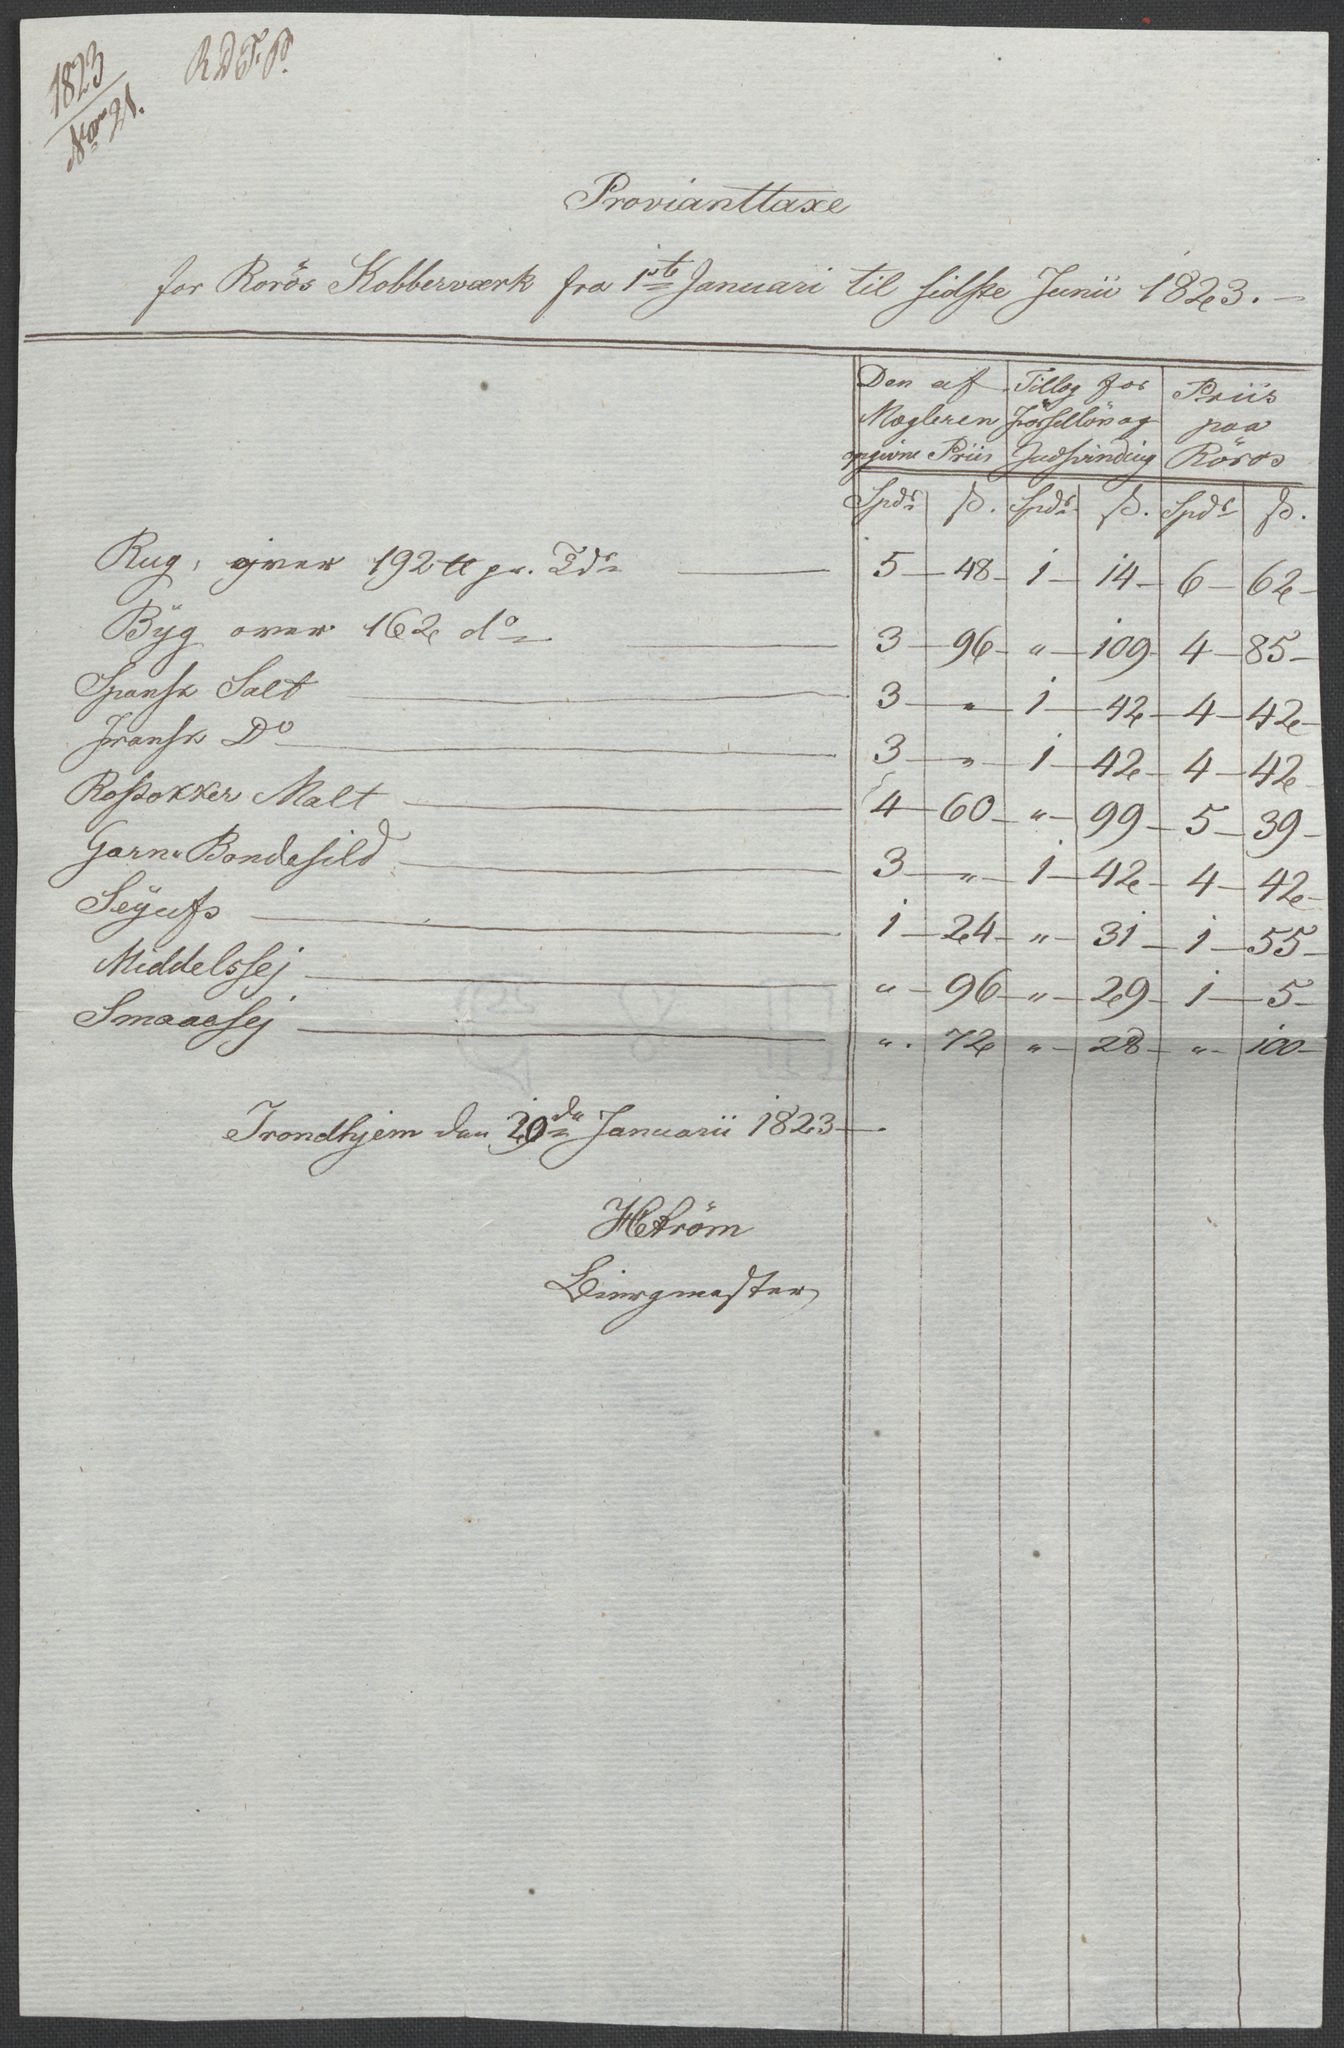 1823
No 21.
R D T. P.
Provianttaxe
for Rorös Kobberværk fra 1ste Januari til sidste Junii 1823. —
Den af Mægleren opgivne Priis | Tillæg for Förselløn og Indsvinding | Priis paa Röros
Spdr | ß. | Spdr | ß. | Spdr | ß.
Rug, over 192 ℔ pr. Tdr — 5 — 48 — 1 — 14 — 6 — 62 —
Bÿg over 162 do — 3 — 96 — " — 109 — 4 — 85 —
Spansk Salt — 3 — " — 1 — 42 — 4 — 42 —
Fransk Do — 3 — " — 1 — 42 — 4 — 42 —
Rostokker Malt — 4 — 60 — " — 99 — 5 — 39 —
Garn Bondesild — 3 — " — 1 — 42 — 4 — 42 —
Seÿufs — 1 — 24 — " — 31 — 1 — 55 —
Middelssej — " — 96 — " — 29 — 1 — 5 —
Smaaesej — " . 72 " — 28 — " — 100 —
Trondhjem den 20de Januarii 1823 —
Ström
Biergmester